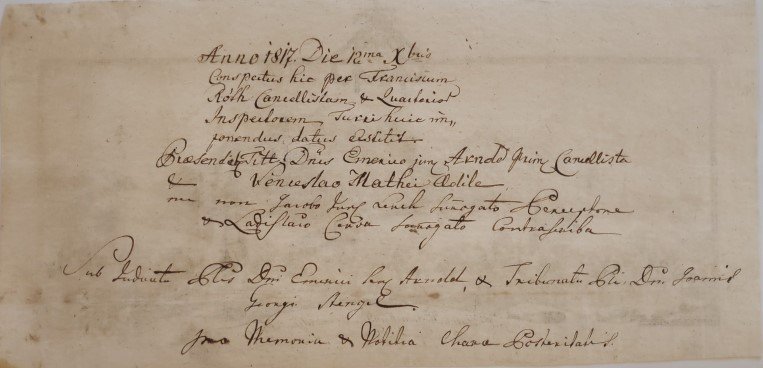 Anno 1817. Die 12ma Xbris
Conspectus hic per Franciscum
Róth Cancellistam & Quarterior
Inspectorem, Turri huic im,,
ponendus, datus extitit.
Præsent Titt. Dnis Emerico jun Arnold Prim Cancellista
& Venceslao Mathei Ædile,
nec non Jacobo surrogato Perceptore
& Ladislao surrogato Contrascriba
Sub Judicatu Dni Emerici Arnold, & Tribunatu Dni Joannis
Georgi Stengel.
pro Memoria & Notitia Charæ Posteritatis.